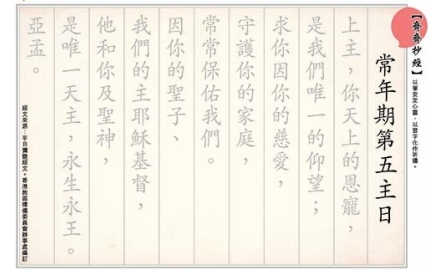 【齊齊抄經】以筆安定心靈，以習字化作祈禱。
常年期第五主日
上主，你天上的恩寵，
是我們唯一的仰望；
求你因你的慈愛，
守護你的家庭，
常常保佑我們。
因你的聖子、
我們的主耶穌基督，
他和你及聖神，
是唯一天主，永生永王。
亞孟。
經文來源：平日彌撒經文，香港教區禮儀委員會辦事處編訂